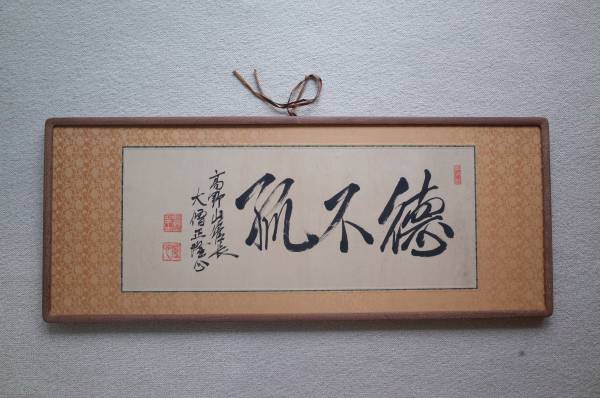 德不孤
高野山座長
大僧正隆心